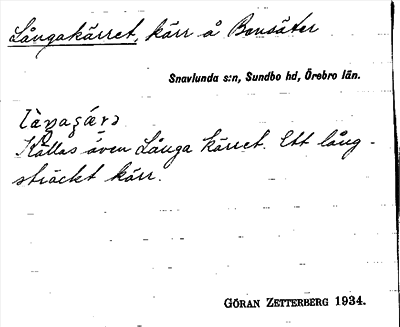 Långakärret, kärr å Bonsäter
Snavlunda s:n, Sundbo hd, Örebro län.
Kallas även Långa kärret. Ett lång-
sträckt kärr.
GÖRAN ZETTERBERG 1934.